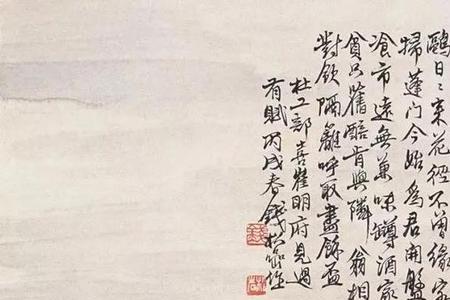 鷗日〻來花徑不曾緣客
掃蓬門今始為君開盤
飡市遠無兼味罇酒家
貧只舊醅肯與隣翁相
對飲隔籬呼取盡餘盃
杜工部喜崔明府見過
有賦丙戌春錢松喦作